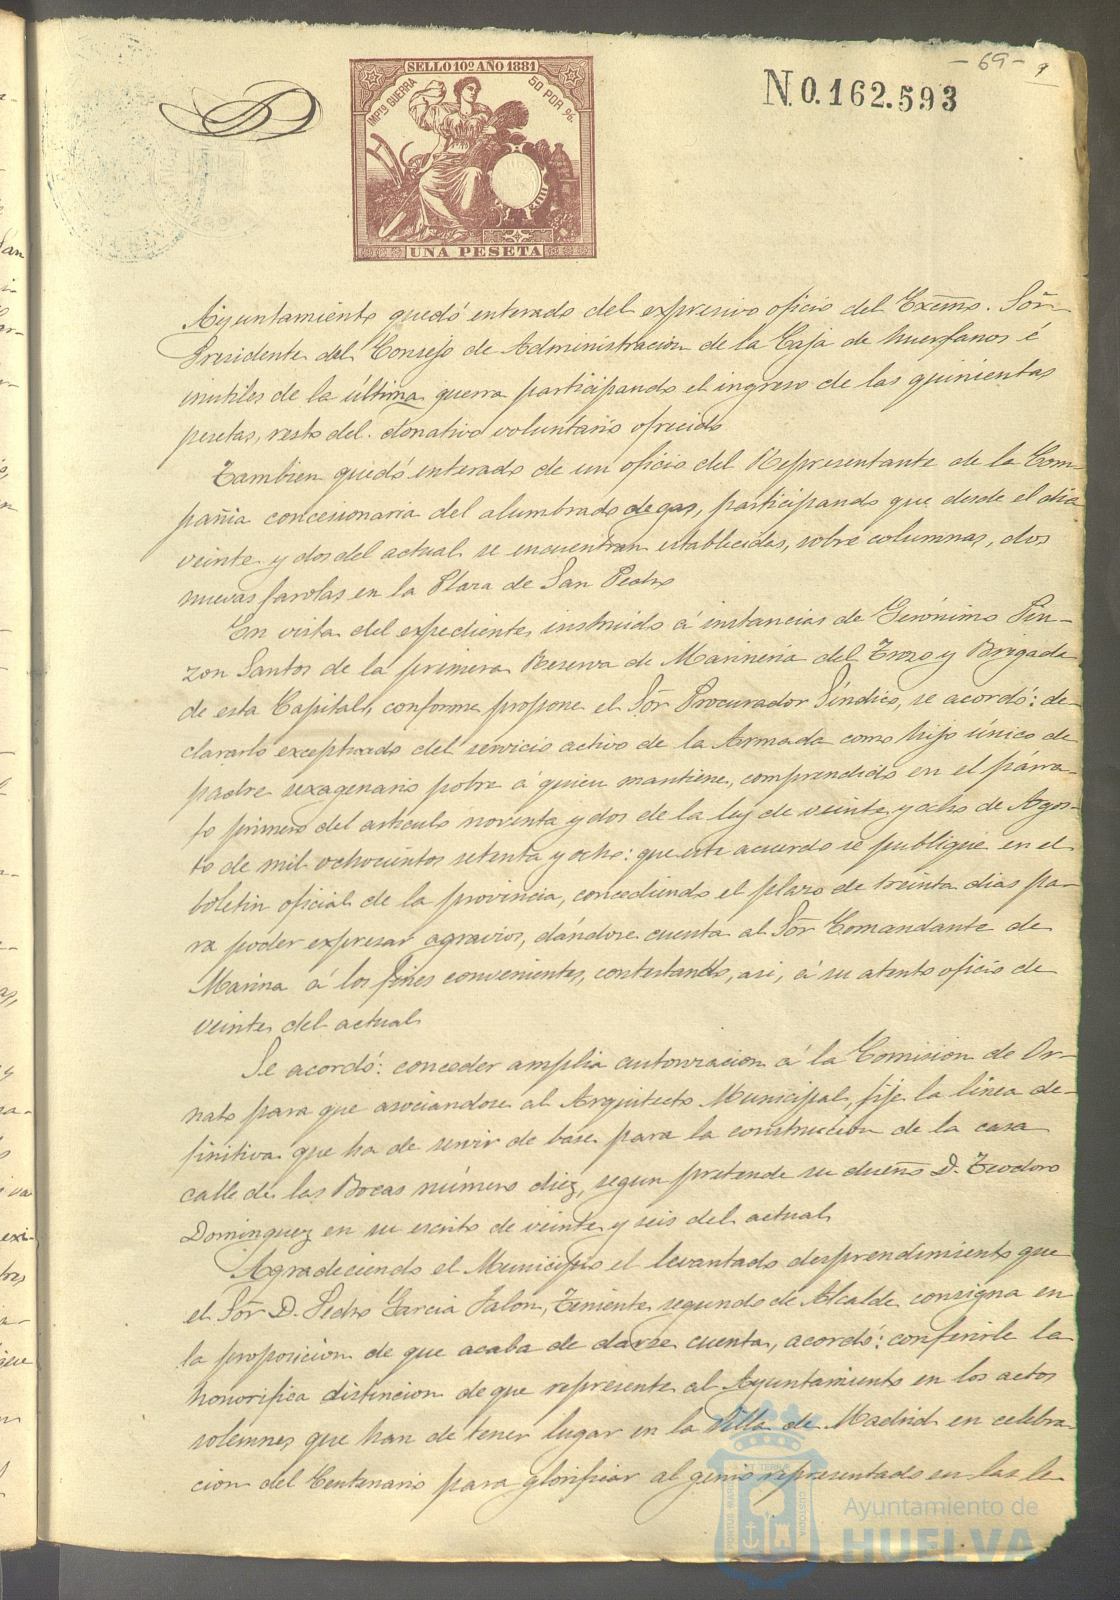 - 69 -
SELLO 10º AÑO 1881
IMPTO GUERRA
50 POR %
UNA PESETA
N.0.162.593
Ayuntamiento quedó enterado del expresivo oficio del Excmo. Sõr
Presidente del Consejo de Administracion de la Caja de huerfanos é
inutiles de la última guerra participando el ingreso de las quinientas
pesetas, resto del donativo voluntario ofrecido
Tambien quedó enterado de un oficio del Representante de la Com-
pañia concesionaria del alumbrado de gas, participando que desde el dia
veinte y dos del actual se encuentran establecidas, sobre columnas, dos
nuevas farolas en la Plaza de San Pedro
En vista del expediente instruido á instancias de Gerónimo Pin-
zon Santos de la primera Reserva de Marineria del Trozo y Brigada
de esta Capital, conforme propone el Sõr Procurador Síndico, se acordó: de-
clararlo exceptuado del servicio activo de la Armada como hijo único de
padre sexagenario pobre á quien mantiene, comprendido en el párra-
fo primero del articulo noventa y dos de la ley de veinte y ocho de Agos-
to de mil ochocientos setenta y ocho: que este acuerdo se publique en el
boletin oficial de la provincia, concediendo el plazo de treinta dias pa-
ra poder expresar agravios, dándose cuenta al Sõr Comandante de
Marina á los fines convenientes, contestando, asi, á su atento oficio de
veinte del actual
Se acordó: conceder amplia autorizacion á la Comision de Or-
nato para que asociandose al Arquitecto Municipal, fije la linea de-
finitiva que ha de servir de base para la construccion de la casa
calle de las Bocas número diez, segun pretende su dueño D. Teodoro
Dominguez en su escrito de veinte y seis del actual
Agradeciendo el Municipio el levantado desprendimiento que
el Sõr D. Pedro Garcia Jalon, Teniente segundo de Alcalde consigna en
la proposicion de que acaba de darse cuenta, acordó: conferirle la
honorifica distincion de que represente al Ayuntamiento en los actos
solemnes que han de tener lugar en la Villa de Madrid en celebra-
cion del Centenario para glorificar al genio representado en las le-
Ayuntamiento de
HUELVA